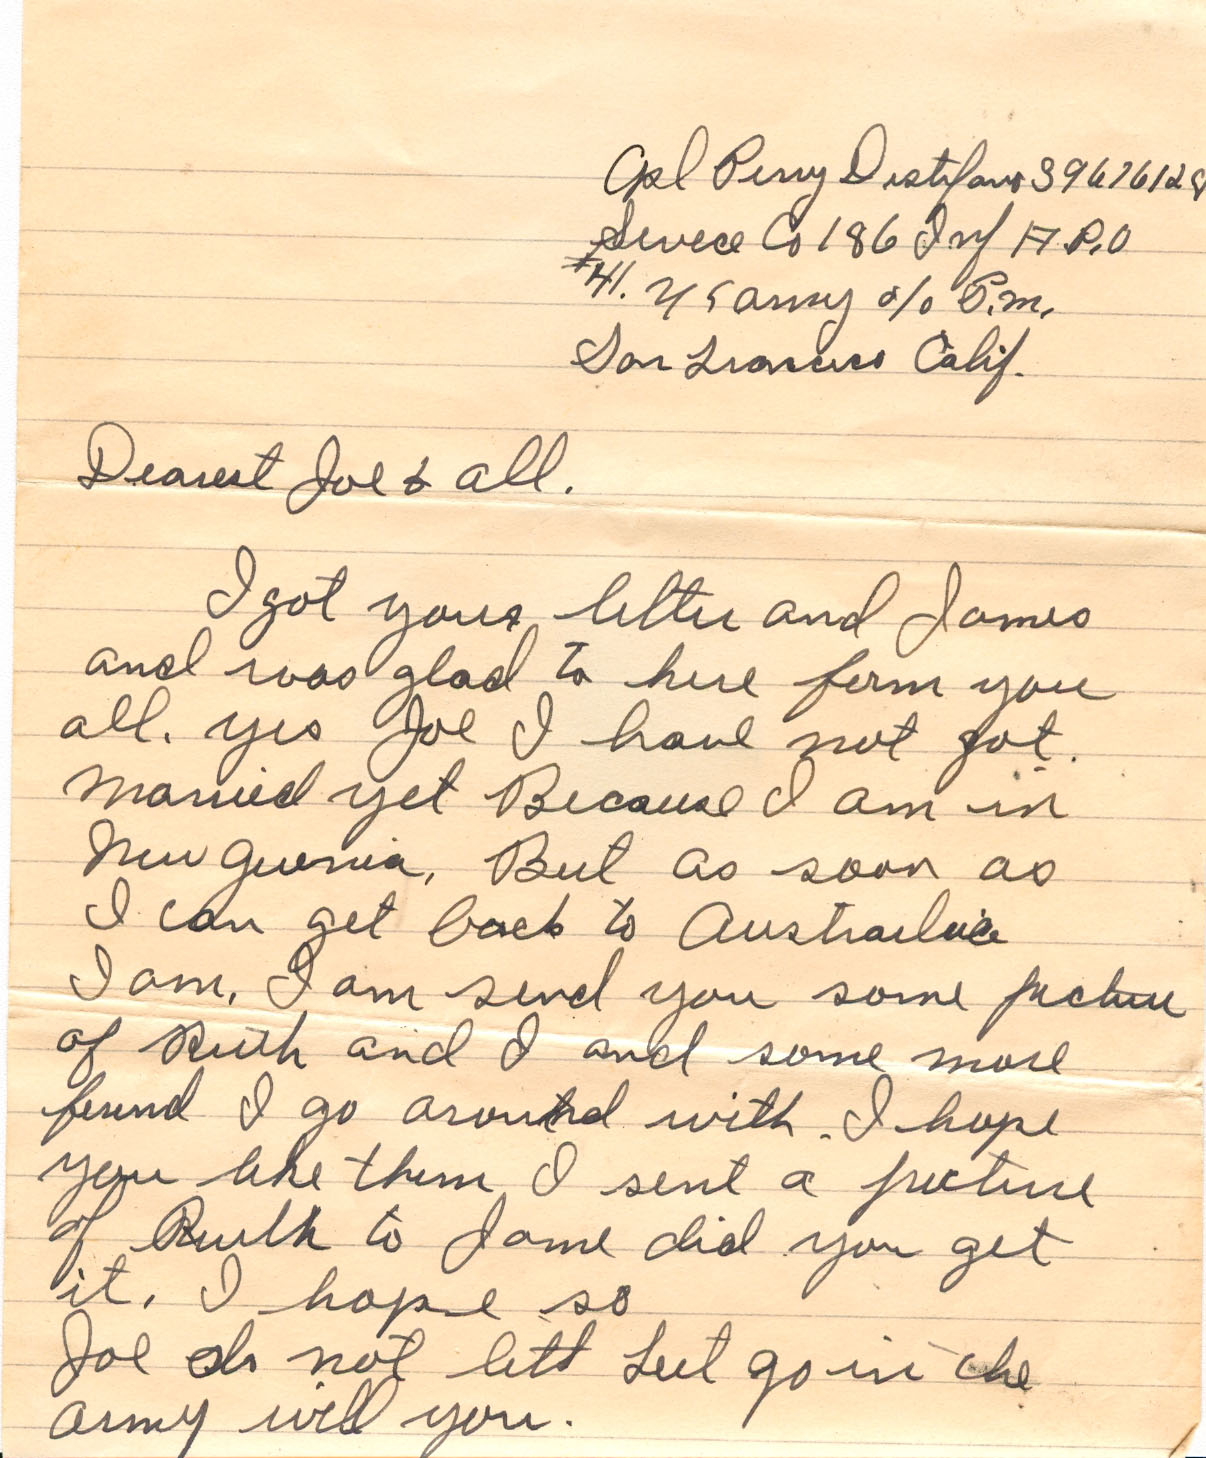 Cpl Perry Distefano 39676128
Servece Co 186 Inf A.P.O
#41. U S army c/o P.m.
San Francisco Calif.
Dearest Joe & all.
I got your letter and James
and was glad to here form you
all. yes Joe I have not got
married yet Because I am in
New Guenia, But as soon as
I can get back to Australia
I am. I am send you some picture
of Ruth and I and some more
ferind I go around with. I hope
you like them I sent a picture
of Ruth to Jame did you get
it. I hope so
Joe do not lett go in the
army will you.